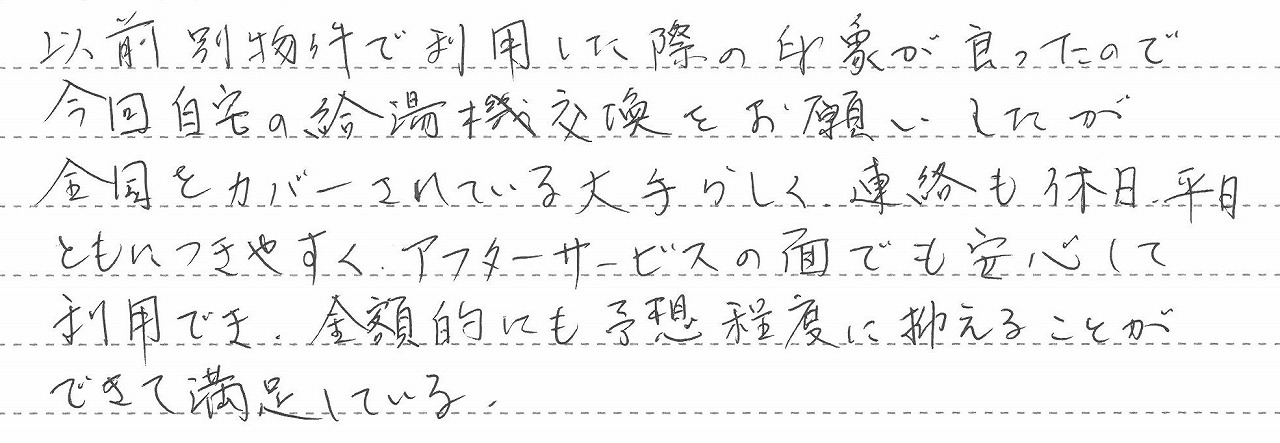 以前別物件で利用した際の印象が良ったので
今回自宅の給湯機交換をお願いしたが
全国をカバーされている大手らしく、連絡も休日、平日
ともにつきやすく、アフターサービスの面でも安心して
利用でき、金額的にも予想程度に抑えることが
できて満足している。